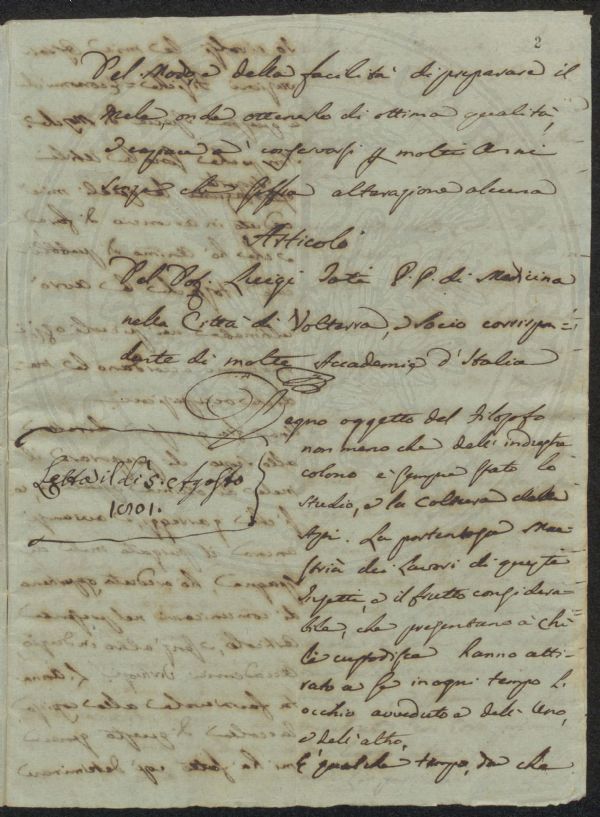 2
Del Modo, e della facilità di preparare il
Mele, onde ottenerlo di ottima qualità,
e capace a conservarsi p molti Anni
senza che soffra alterazione alcuna
Articolo
Del Dof. Luigi Tati P. P. di Medicina
nella Città di Volterra, e Socio corrispon=
dente di molte Accademie d'Italia
Degno oggetto del Filosofo
non meno che dell' industre
colono è sempre stato lo
studio, e la coltura delle
Api. La portentosa mae=
stria dei Lavori di questi
Insetti, e il frutto considera=
bile, che presentano a chi
le custodisce hanno atti=
rato a se in ogni tempo l'
occhio avveduto e dell' Uno,
e dell' altro.
E' qualche tempo, da che
Letta il dì 5. Agosto
1801.